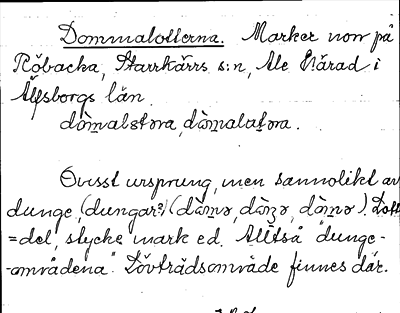 Dommalotterna. Marker norr på
Röbacka, Starrkärrs s:n, Ale Härad i
Älfsborgs län.
Ovisst ursprung, men sannolikt av
dunge, (dungar?)
=del, stycke mark ed. Alltså "dunge-
-områdena". Lövträdsområde finnes där.